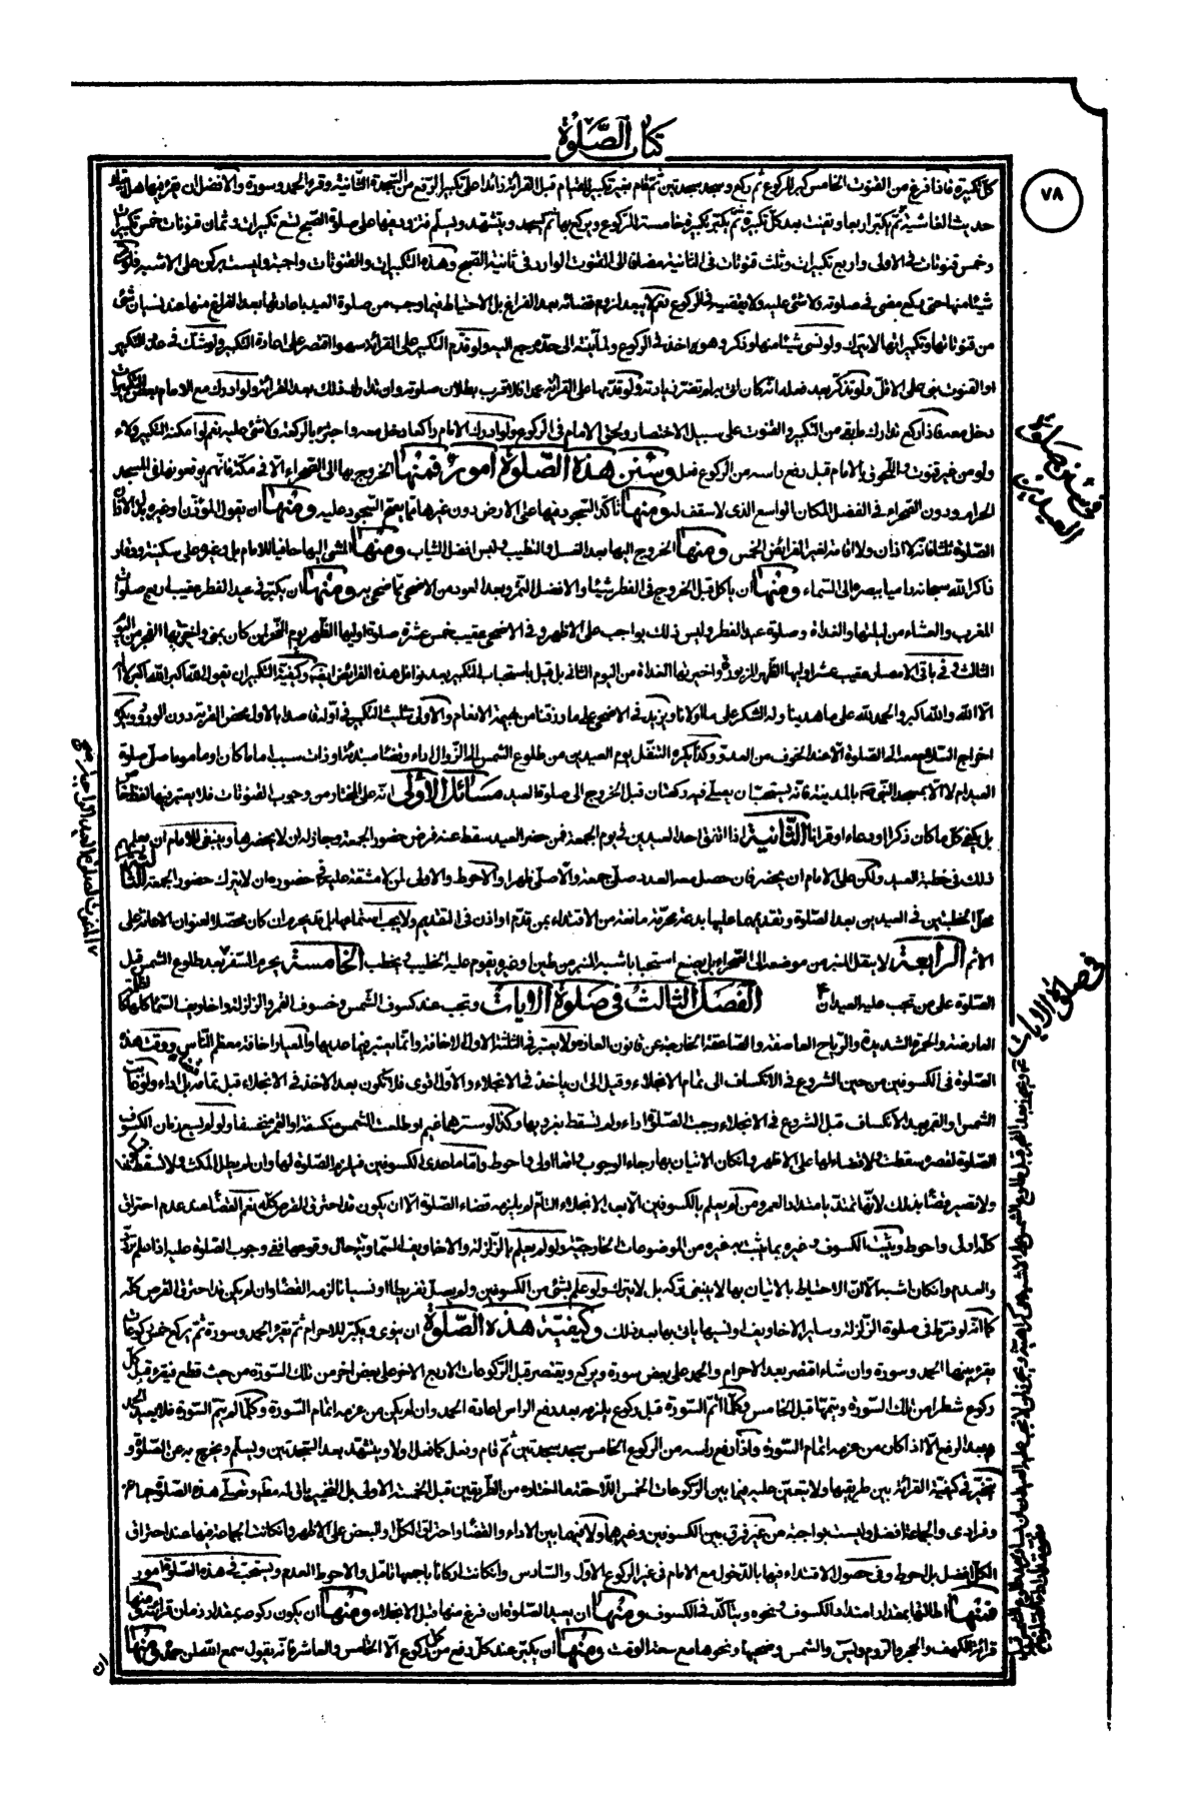 كتاب الصلوة
٧٨
كل تكبيرة فاذا فرغ من القنوت الخامس كبر للركوع ثم ركع وسجد سجدتين ثم قام بغير تكبير للقيام قبل القرائة زائدا على تكبير الرفع من السجدة الثانية وقرء الحمد وسورة والافضل ان يقرء فيها
حديث الغاشية ثم يكبر اربعا ويقنت بعد كل تكبيرة ثم يكبر تكبيرة خامسة للركوع ويركع بها ثم يسجد ويتشهد ويسلم فتزيد فيها على صلوة الصبح تسع تكبيرات وثمان قنوتات خمس تكبيرات
وخمس قنوتات في الاولى واربع تكبيرات وثلث قنوتات في الثانية مضافا الى القنوت الوارد في ثانية الصبح وهذه التكبيرات والقنوتات واجبة وليست بركن على الاشبه فلو ترك
شيئا منها حتى ركع مضى في صلوته ولا شئ عليه ولا يقضيه في الركوع نعم لا يبعد لزوم قضائه بعد الفراغ بل الاحتياط فيما وجب من صلوة العيد باعادتها بعد الفراغ منها عند نسيان شئ
من قنوتاتها وتكبيراتها لا يترك ولو نسى شيئا منها وذكر وهو ياخذ في الركوع ولما يأت الى حده رجع اليه ولو قدم التكبير على القرائة سهوا اقتصر على اعادة التكبير ولو شك في عدد التكبير
او القنوت بنى على الاقل ولو تذكر بعد فعله انه كان اتى به لم تضر زيادته ولو قدمها على القرائة عمدا فالاقرب بطلان صلوته وان تدارك ذلك بعد القرائة ولو ادرك مع الامام بعض التكبيرات
دخل معه فاذا ركع تدارك ما بقى من التكبير والقنوت على سبيل الاختصار ويلحق الامام في الركوع ولو ادرك الامام راكعا دخل معه واجتزء بالركعة ولا شئ عليه نعم لو امكنه التكبير ولاء
ولو من غير قنوت واللحوق بالامام قبل رفع راسه من الركوع فعل وسنن هذه الصلوة امور فمنها الخروج بها الى الصحراء الا في مكة فانهم يوقعونها في المسجد
الحرام ودون الصحراء في الفضل المكان الواسع الذي لا سقف له ومنها تأكد السجود فيها على الارض دون غيرها مما يصح السجود عليه ومنها ان يقول المؤذن او غيره بدل الاذان
الصلوة ثلثا فانه لا اذان ولا اقامة لغير الفرائض الخمس ومنها الخروج اليها بعد الغسل والتطيب ولبس افضل الثياب ومنها المشى اليها حافيا للامام بل وغيره على سكينة ووقار
ذاكرا لله سبحانه راميا ببصره الى السماء ومنها ان يأكل قبل الخروج في الفطر شيئا والافضل التمر وبعد العود من الاضحى مما ضحى به ومنها ان يكبر في عيد الفطر عقيب اربع صلوات
المغرب والعشاء من ليلتها والغداة وصلوة عيد الفطر وليس ذلك بواجب على الاظهر وفي الاضحى عقيب خمس عشرة صلوة اوليها الظهر يوم النحر ان كان بمنى واخيرتها الفجر من اليوم
الثالث وفي باقي الامصار عقيب عشر اوليها الظهر المزبورة واخيرتها الغداة من اليوم الثاني بل قيل باستحباب التكبير بعد نوافل هذه الفرائض ايضا وكيفية التكبير ان يقول الله اكبر الله اكبر لا اله
الا الله والله اكبر والحمد لله على ما هدينا وله الشكر على ما اولانا ويزيد في الاضحى على ما رزقنا من بهيمة الانعام والاولى تثليث التكبير في اوله قاصدا بالاول محض القربة دون الورود ويكره
اخراج السلاح معه الى الصلوة الا عند الخوف من العدو وكذا يكره التنفل يوم العيدين من طلوع الشمس الى الزوال اداء وقضاء مبتدئة او ذات سبب اماما كان او ماموما صلى صلوة
العيد ام لا الا بمسجد النبي ص بالمدينة فانه يستحب ان يصلى فيه ركعتان قبل الخروج الى صلوة العيد مسائل الاولى انه على المختار من وجوب القنوتات فلا يعتبر فيها لفظ خاص
بل يكفى كل ما كان ذكرا او دعاء او قرانا الثانية اذا اتفق احد العيدين في يوم الجمعة فمن حضر العيد سقط عنه فرض حضور الجمعة وجاز له ان لا يحضرها وينبغي للامام ان يعلم
ذلك في خطبة العيد ولكن على الامام ان يحضر فان حصل معه العدد صلى جمعة والا صلى ظهرا والاحوط والاولى لمن لا مشقة عليه في حضوره ان لا يترك حضور الجمعة الثالثة
محل الخطبتين في العيدين بعد الصلوة وتقديمها عليها بدعة محرمة مانعة من الاقتداء بمن قدم او اذن في التقديم ولا يجب استماعها بل قد يحرم ان كان محققا لعنوان الاعانة على
الاثم الرابعة لا ينقل المنبر من موضعه الى الصحراء بل يصنع استحبابا شبه المنبر من طين او غيره يقوم عليه الخطيب فيخطب الخامسة يحرم السفر بعد طلوع الشمس قبل
الصلوة على من تجب عليه العيدان الفصل الثالث في صلوة الايات وتجب عند كسوف الشمس وخسوف القمر والزلزلة واخاويف السماء كلها كالظلمة
العارضة والحمرة الشديدة والرياح العاصفة والصاعقة الخارجة عن قانون العادة ولا يعتبر في الثلثة الاولى الاخافة وانما يعتبر فيما عديها والمعيار اخافة معظم الناس ووقت هذه
الصلوة في الكسوفين من حين الشروع في الانكساف الى تمام الانجلاء وقيل الى ان ياخذ في الانجلاء والاول اقوى فلا تكون بعد الاخذ في الانجلاء قبل تمامه الا اداء ولو غابت
الشمس او القمر بعد الانكساف قبل الشروع في الانجلاء وجبت الصلوة اداء ولم تسقط بغروبها وكذا لو سترها غيم او طلعت الشمس منكسفة او القمر منخسفا ولو لم يسع زمان الكسوف
الصلوة لقصره سقطت ولا قضاء لها على الاظهر وان كان الاتيان بها رجاء الوجوب واقعا اولى واحوط واما ما عدى الكسوفين فيلزم الصلوة لها وان لم يطل المكث ولا تسقط
ولا تصير قضاء بذلك لانها تمتد بامتداد العمر ومن لم يعلم بالكسوفين الا بعد الانجلاء التام لم يلزمه قضاء الصلوة الا ان يكون قد احترق القرص كله نعم القضاء عند عدم احتراق
كله اولى واحوط ويثبت الكسوف وغيره بما يثبت به غيره من الموضوعات الخارجية ولو لم يعلم بالزلزلة والاخاويف السماوية حال وقوعها ففي وجوب الصلوة عليه اذا علم تردد
والعدم وان كان اشبه الا ان الاحتياط بالاتيان بها لا ينبغي تركه بل لا يترك ولو علم بشئ من الكسوفين ولم يصل تفريطا او نسيانا لزمه القضاء وان لم يكن قد احترق القرص كله
كما انه لو فرط في صلوة الزلزلة وساير الاخاويف او نسيها ياتي بها بعد ذلك وكيفية هذه الصلوة ان ينوي ويكبر للاحرام ثم يقرء الحمد وسورة ثم يركع خمس ركوعات
يقرء بينها الحمد وسورة وان شاء اقتصر بعد الاحرام والحمد على بعض سورة ويركع ويقتصر قبل الركوعات الاربع الاخر على بعض اخر من تلك السورة من حيث قطع فيقرء قبل كل
ركوع شطرا من تلك السورة ويتمها قبل الخامس وكلما اتم السورة قبل ركوع يلزمه بعد رفع الراس اعادة الحمد وان لم يكن من عزمه اتمام السورة وكلما لم يتم السورة فلا يعيد الحمد
بعد الرفع الا اذا كان من عزمه اتمام السورة واذا رفع راسه من الركوع الخامس سجد سجدتين ثم قام وفعل كما فعل اولا ويتشهد بعد السجدتين ويسلم ويخرج به عن الصلوة و
يتخير في كيفية القرائة بين طريقيها ولا يتعين عليه فيما بين الركوعات الخمس اللاحقة ما اختاره من الطريقين قبل الخمسة الاولى بل التخيير باق له مطلقا وتصلى هذه الصلوة جماعة
وفرادى والجماعة افضل وليست بواجبة من غير فرق بين الكسوفين وغيرهما ولا فيهما بين الاداء والقضاء واحتراق الكل او البعض على الاظهر وان كانت الجماعة فيها عند احتراق
الكل افضل بل احوط وفي حصول الاقتداء فيها بالدخول مع الامام في غير الركوع الاول والسادس وان كانت اركانا باجمعها تامل والاحوط العدم ويستحب في هذه الصلوة امور
فمنها اطالتها بمقدار امتداد الكسوف ونحوه ويتأكد في الكسوف ومنها ان يعيد الصلوة ان فرغ منها قبل الانجلاء ومنها ان يكون ركوعه بمقدار زمان قرائته ومنها
قرائة الكهف والحجر والروم ويس والشمس وضحيها ونحوها مع سعة الوقت ومنها ان يكبر عند كل رفع من كل ركوع الا الخامس والعاشر فانه يقول سمع الله لمن حمده ومنها
ان
في سنن صلوة
العيدين
في صلوة الايات